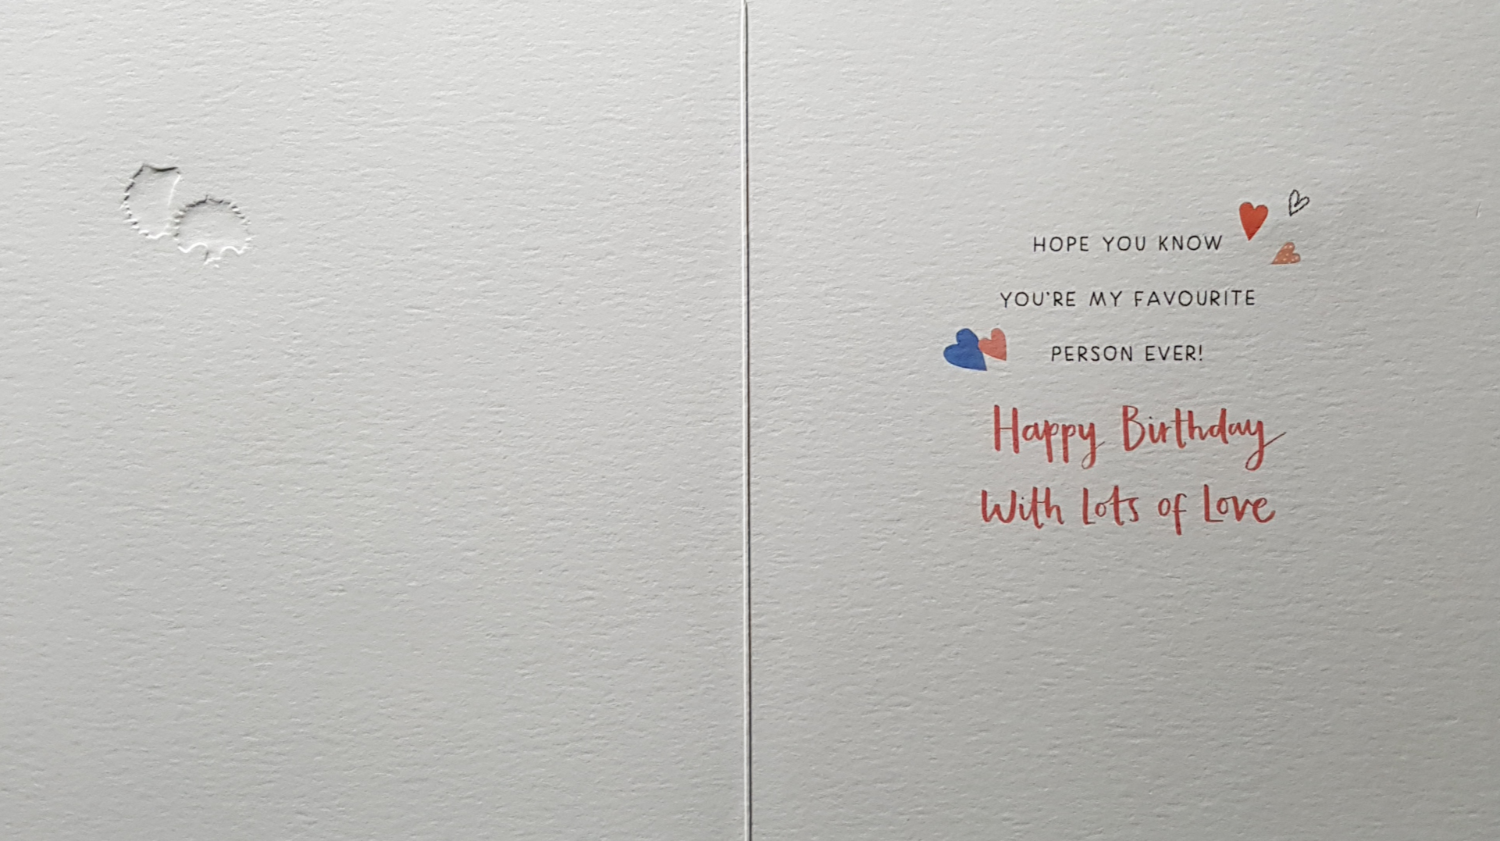 HOPE YOU KNOW
YOU'RE MY FAVOURITE
PERSON EVER!
Happy Birthday
With Lots of Love